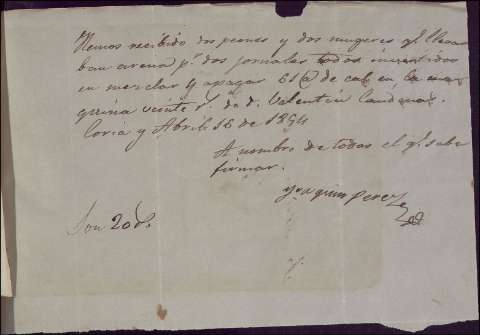 Hemos recibido dos peones y dos mugeres q.e lleva
ban arena p.a dos jornales todos invertidos
en mezclar y apagar 61 @ de cal en la
quina veinte r.s de d. Valentin
Coria y Abril 16 de 1854
A nombre de todos el q.e sabe
firmar.
Joaquin Perez
Son 20 r.s